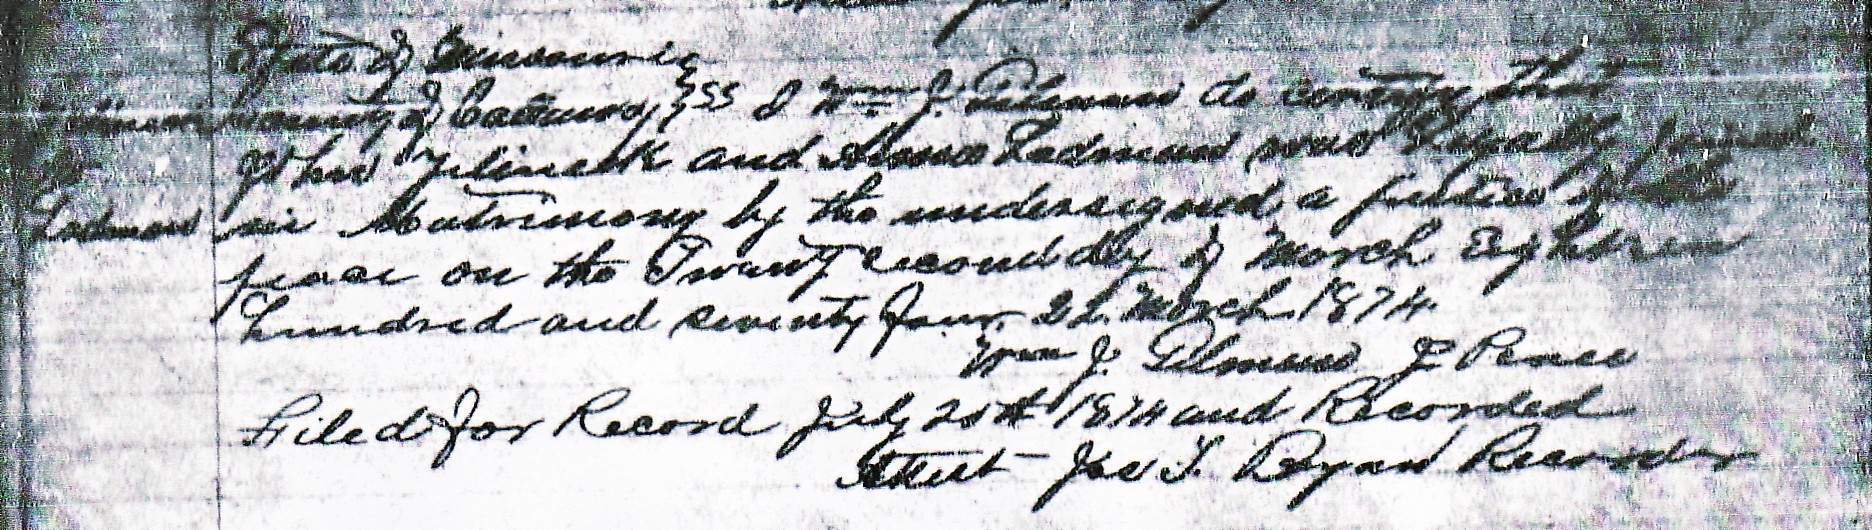 State of Missouri
County of Callaway } SS I Wm J. do certify that
John Jelineck and Anna Ladman was legally joined
Ladman in Matrimony by the undersigned, a justice of the
peace on the Twenty second day of March Eighteen
hundred and seventy four. 22 March 1874
Wm J. J Peace
Filed for Record July 20th 1874 and Recorded
Attest Jas T. Recorder